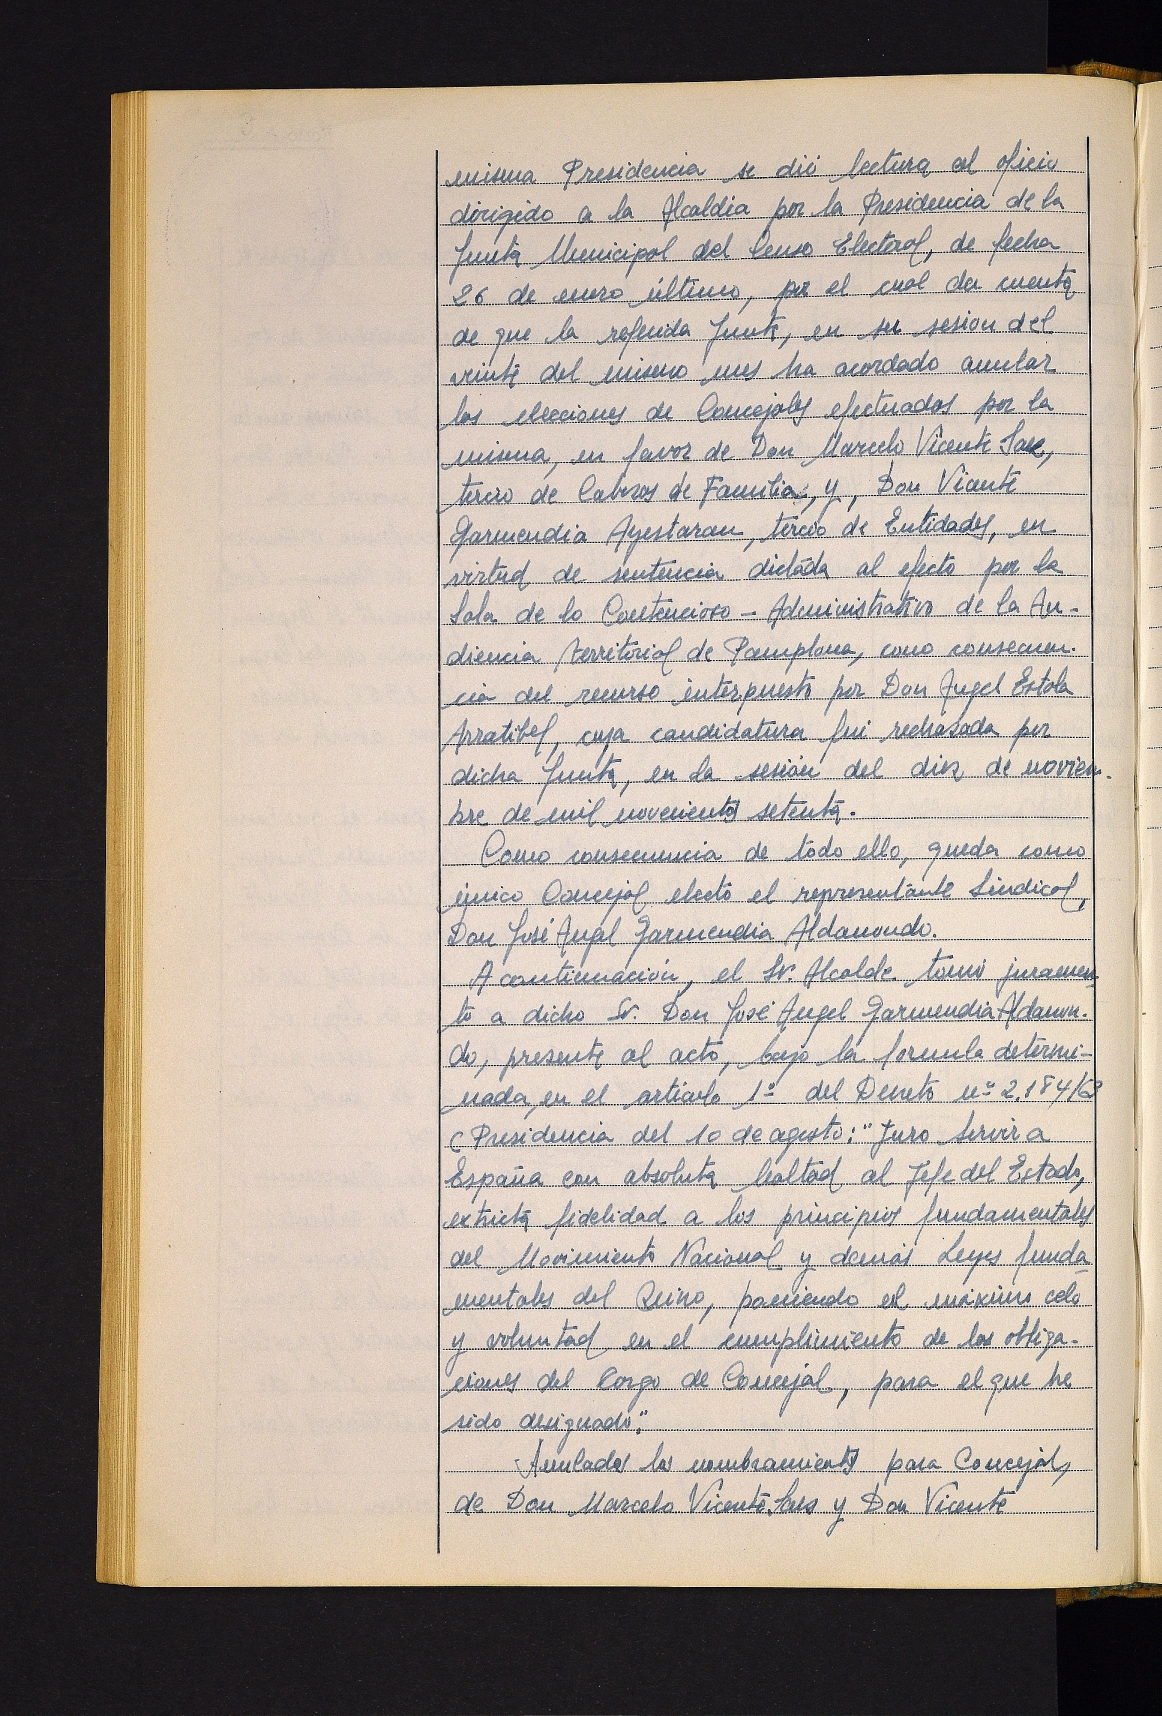 misma Presidencia se dió lectura al oficio
dirigido a la Alcaldia por la Presidencia de la
Junta Municipal del Censo Electoral, de fecha
26 de enero último, por el cual da cuenta
de que la referida Junta, en su sesion del
veinte del mismo mes ha acordado anular
las elecciones de Concejales efectuadas por la
misma, en favor de Don Marcelo Vicente Saez,
tercio de Cabezas de Familia; y, Don Vicente
Garmendia Ayestaran, tercio de Entidades, en
virtud de sentencia dictada al efecto por la
Sala de lo Contencioso - Administrativo de la Au-
diencia Territorial de Pamplona, como consecuen-
cia del recurso interpuesto por Don Angel Estola
Arratibel, cuya candidatura fui rechazada por
dicha Junta, en la sesión del diez de noviem-
bre de mil novecientos setenta.
Como consecuencia de todo ello, queda como
único Concejal electo el representante Sindical,
Don José Angel Garmendia Aldanondo.
A continuación, el Sr. Alcalde tomó juramen-
to a dicho Sr. Don José Angel Garmendia Aldanon-
do, presente al acto, bajo la formula determi-
nada, en el artículo 1º del Decreto nº 2.184/63
(Presidencia del 10 de agosto: "Juro servir a
España con absoluta lealtad al Jefe del Estado,
extricta fidelidad a los principios fundamentales
del Movimiento Nacional y demás Leyes funda-
mentales del Reino, poniendo el máximo celo
y voluntad en el cumplimiento de las obliga-
ciones del Cargo de Concejal, para el que he
sido designado".
Anulados los nombramientos para Concejal,
de Don Marcelo Vicente Saes y Don Vicente